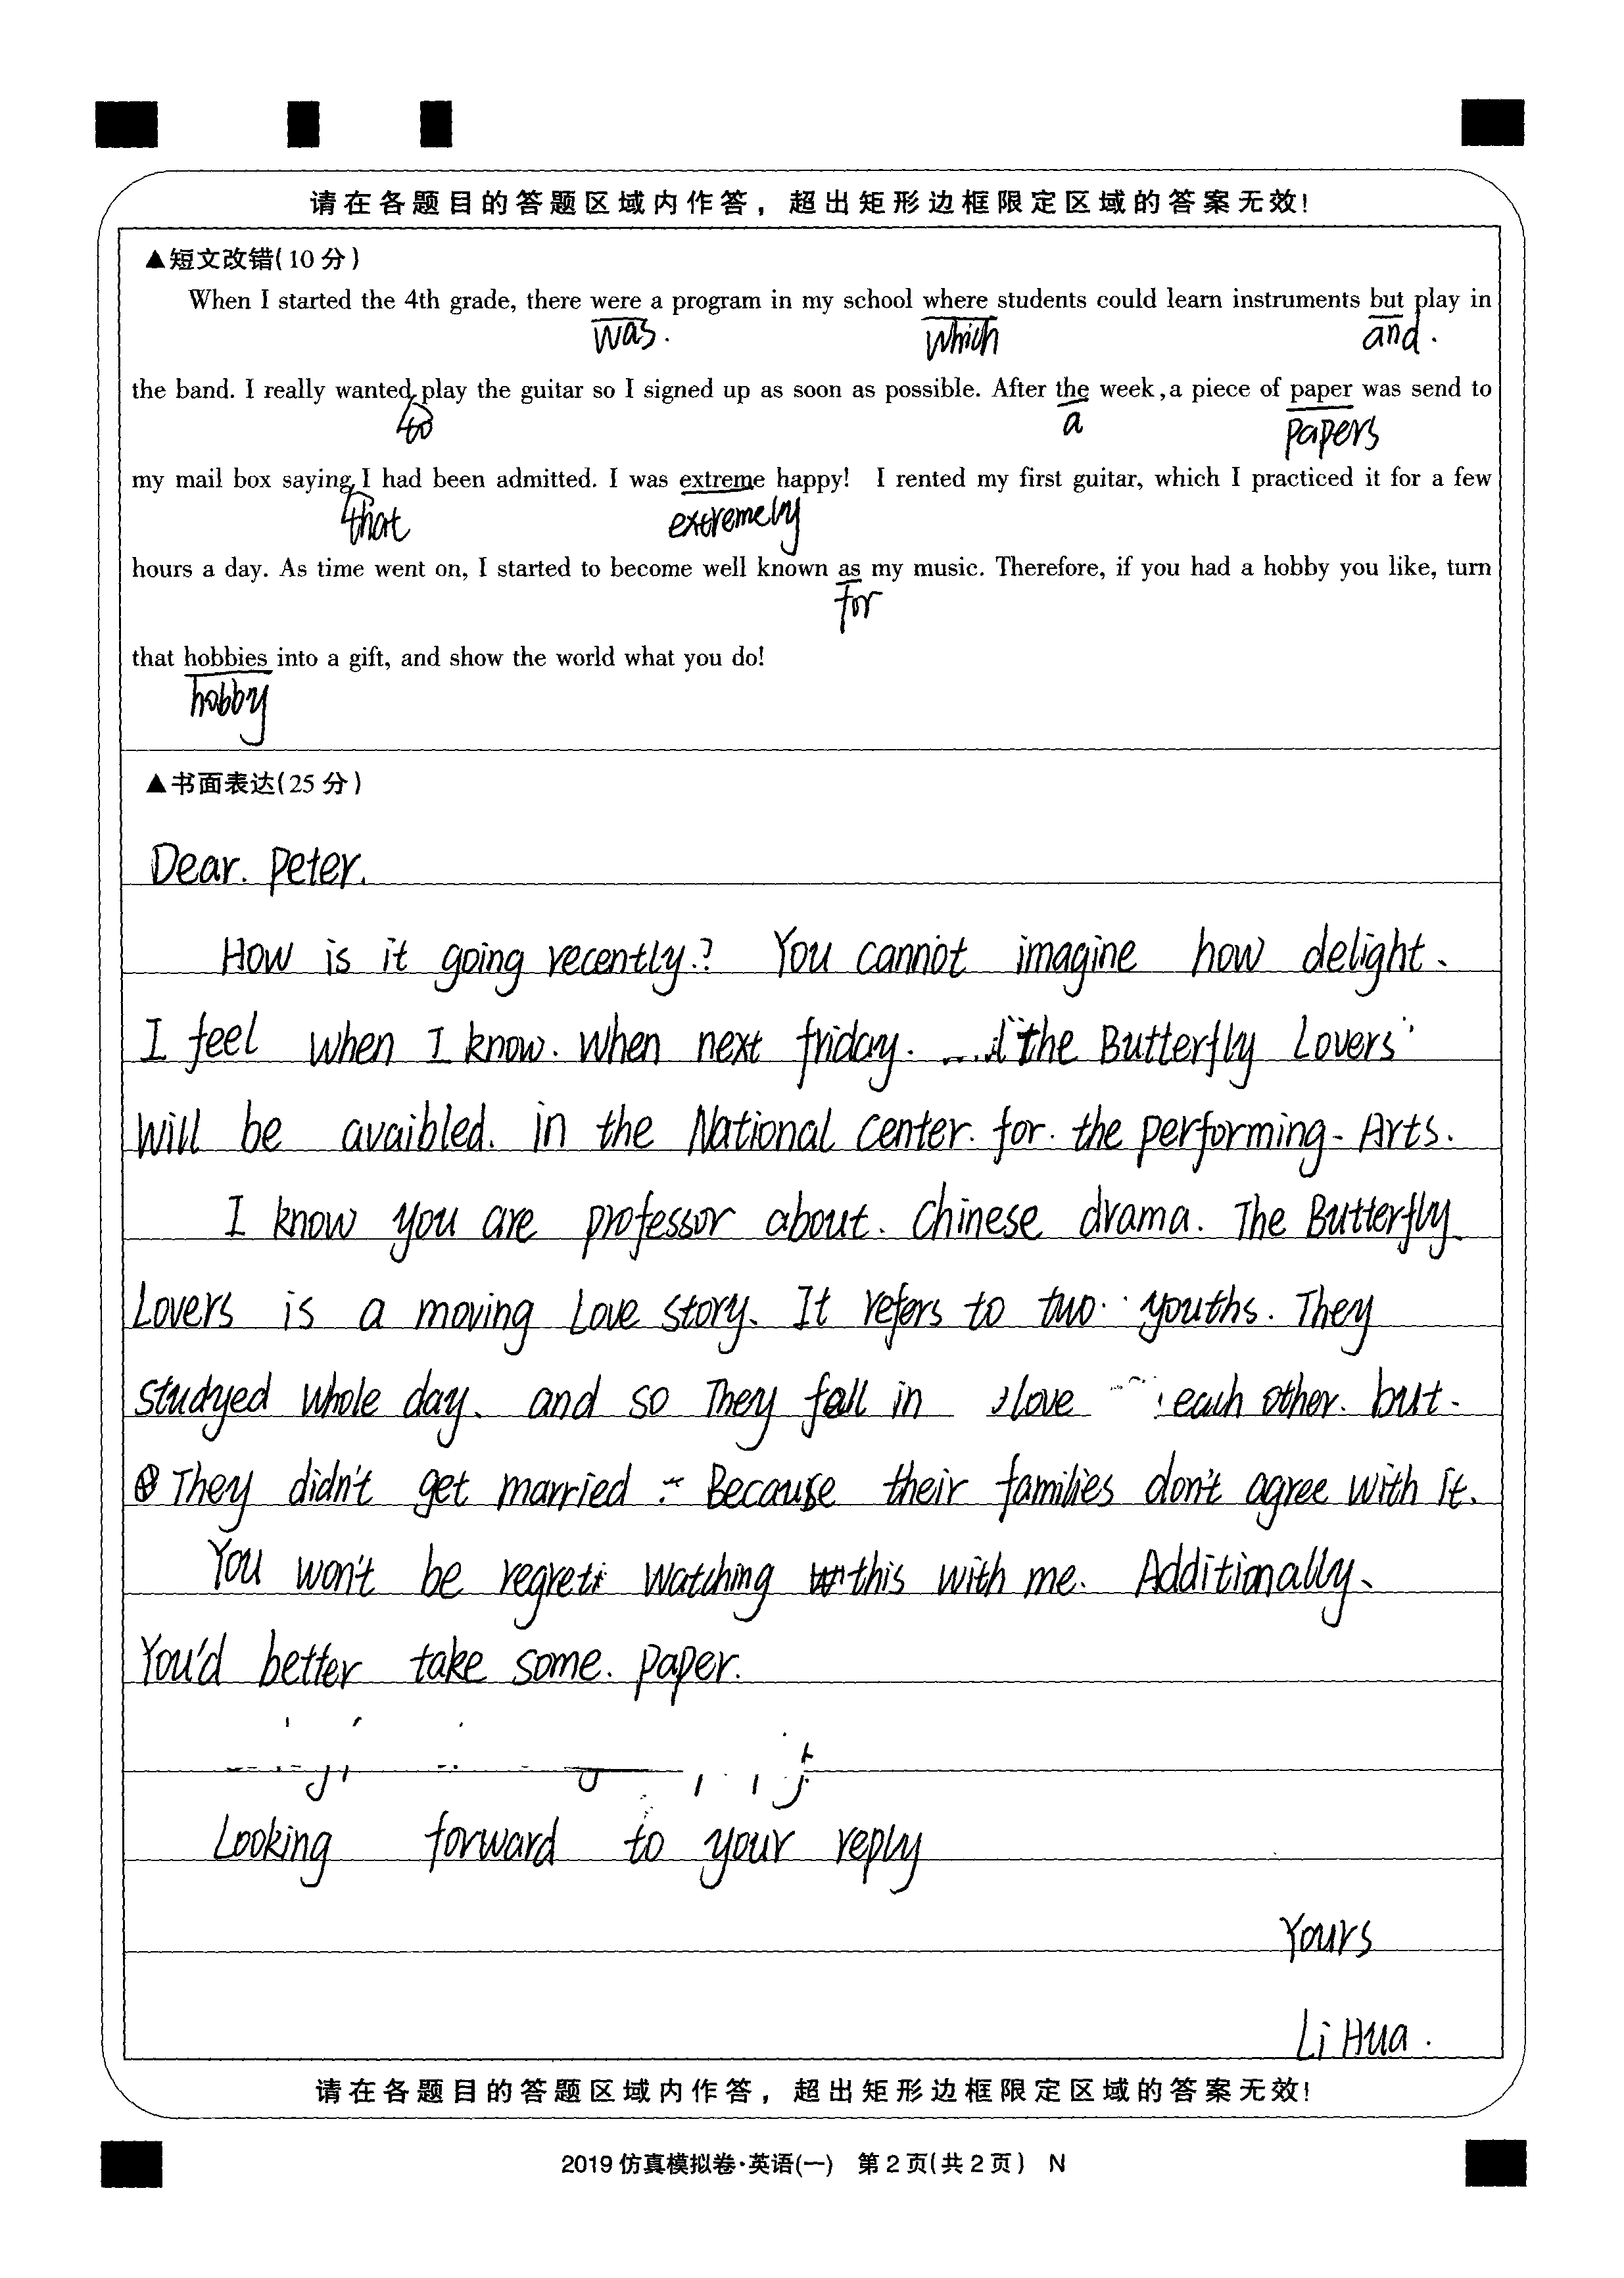 请在各题目的答题区域内作答，超出矩形边框限定区域的答案无效!
▲短文改错(10分)
When I started the 4th grade, there were a program in my school where students could learn instruments but play in
was. which and.
the band. I really wanted play the guitar so I signed up as soon as possible. After the week,a piece of paper was send to
to a papers
my mail box saying I had been admitted. I was extreme happy! I rented my first guitar, which I practiced it for a few
that extremely
hours a day. As time went on, I started to become well known as my music. Therefore, if you had a hobby you like, turn
for
that hobbies into a gift, and show the world what you do!
hobby
▲书面表达(25分)
Dear. Peter.
How is it going recently.? You cannot imagine how delight.
I feel when I know. when next friday. "the Butterfly Lovers"
will be avaibled. in the National center. for. the performing- Arts.
I know you are professor about. chinese drama. The Butterfly
Lovers is a moving love story. It refers to two youths. They
studyed whole day. and so They fall in love each other. but.
They didn't get married Because their families don't agree with it.
You won't be regret watching this with me. Additionally.
You'd better take some. paper.
Looking forward to your reply
Yours
Li Hua.
请在各题目的答题区域内作答，超出矩形边框限定区域的答案无效!
2019仿真模拟卷·英语(一) 第2页(共2页) N